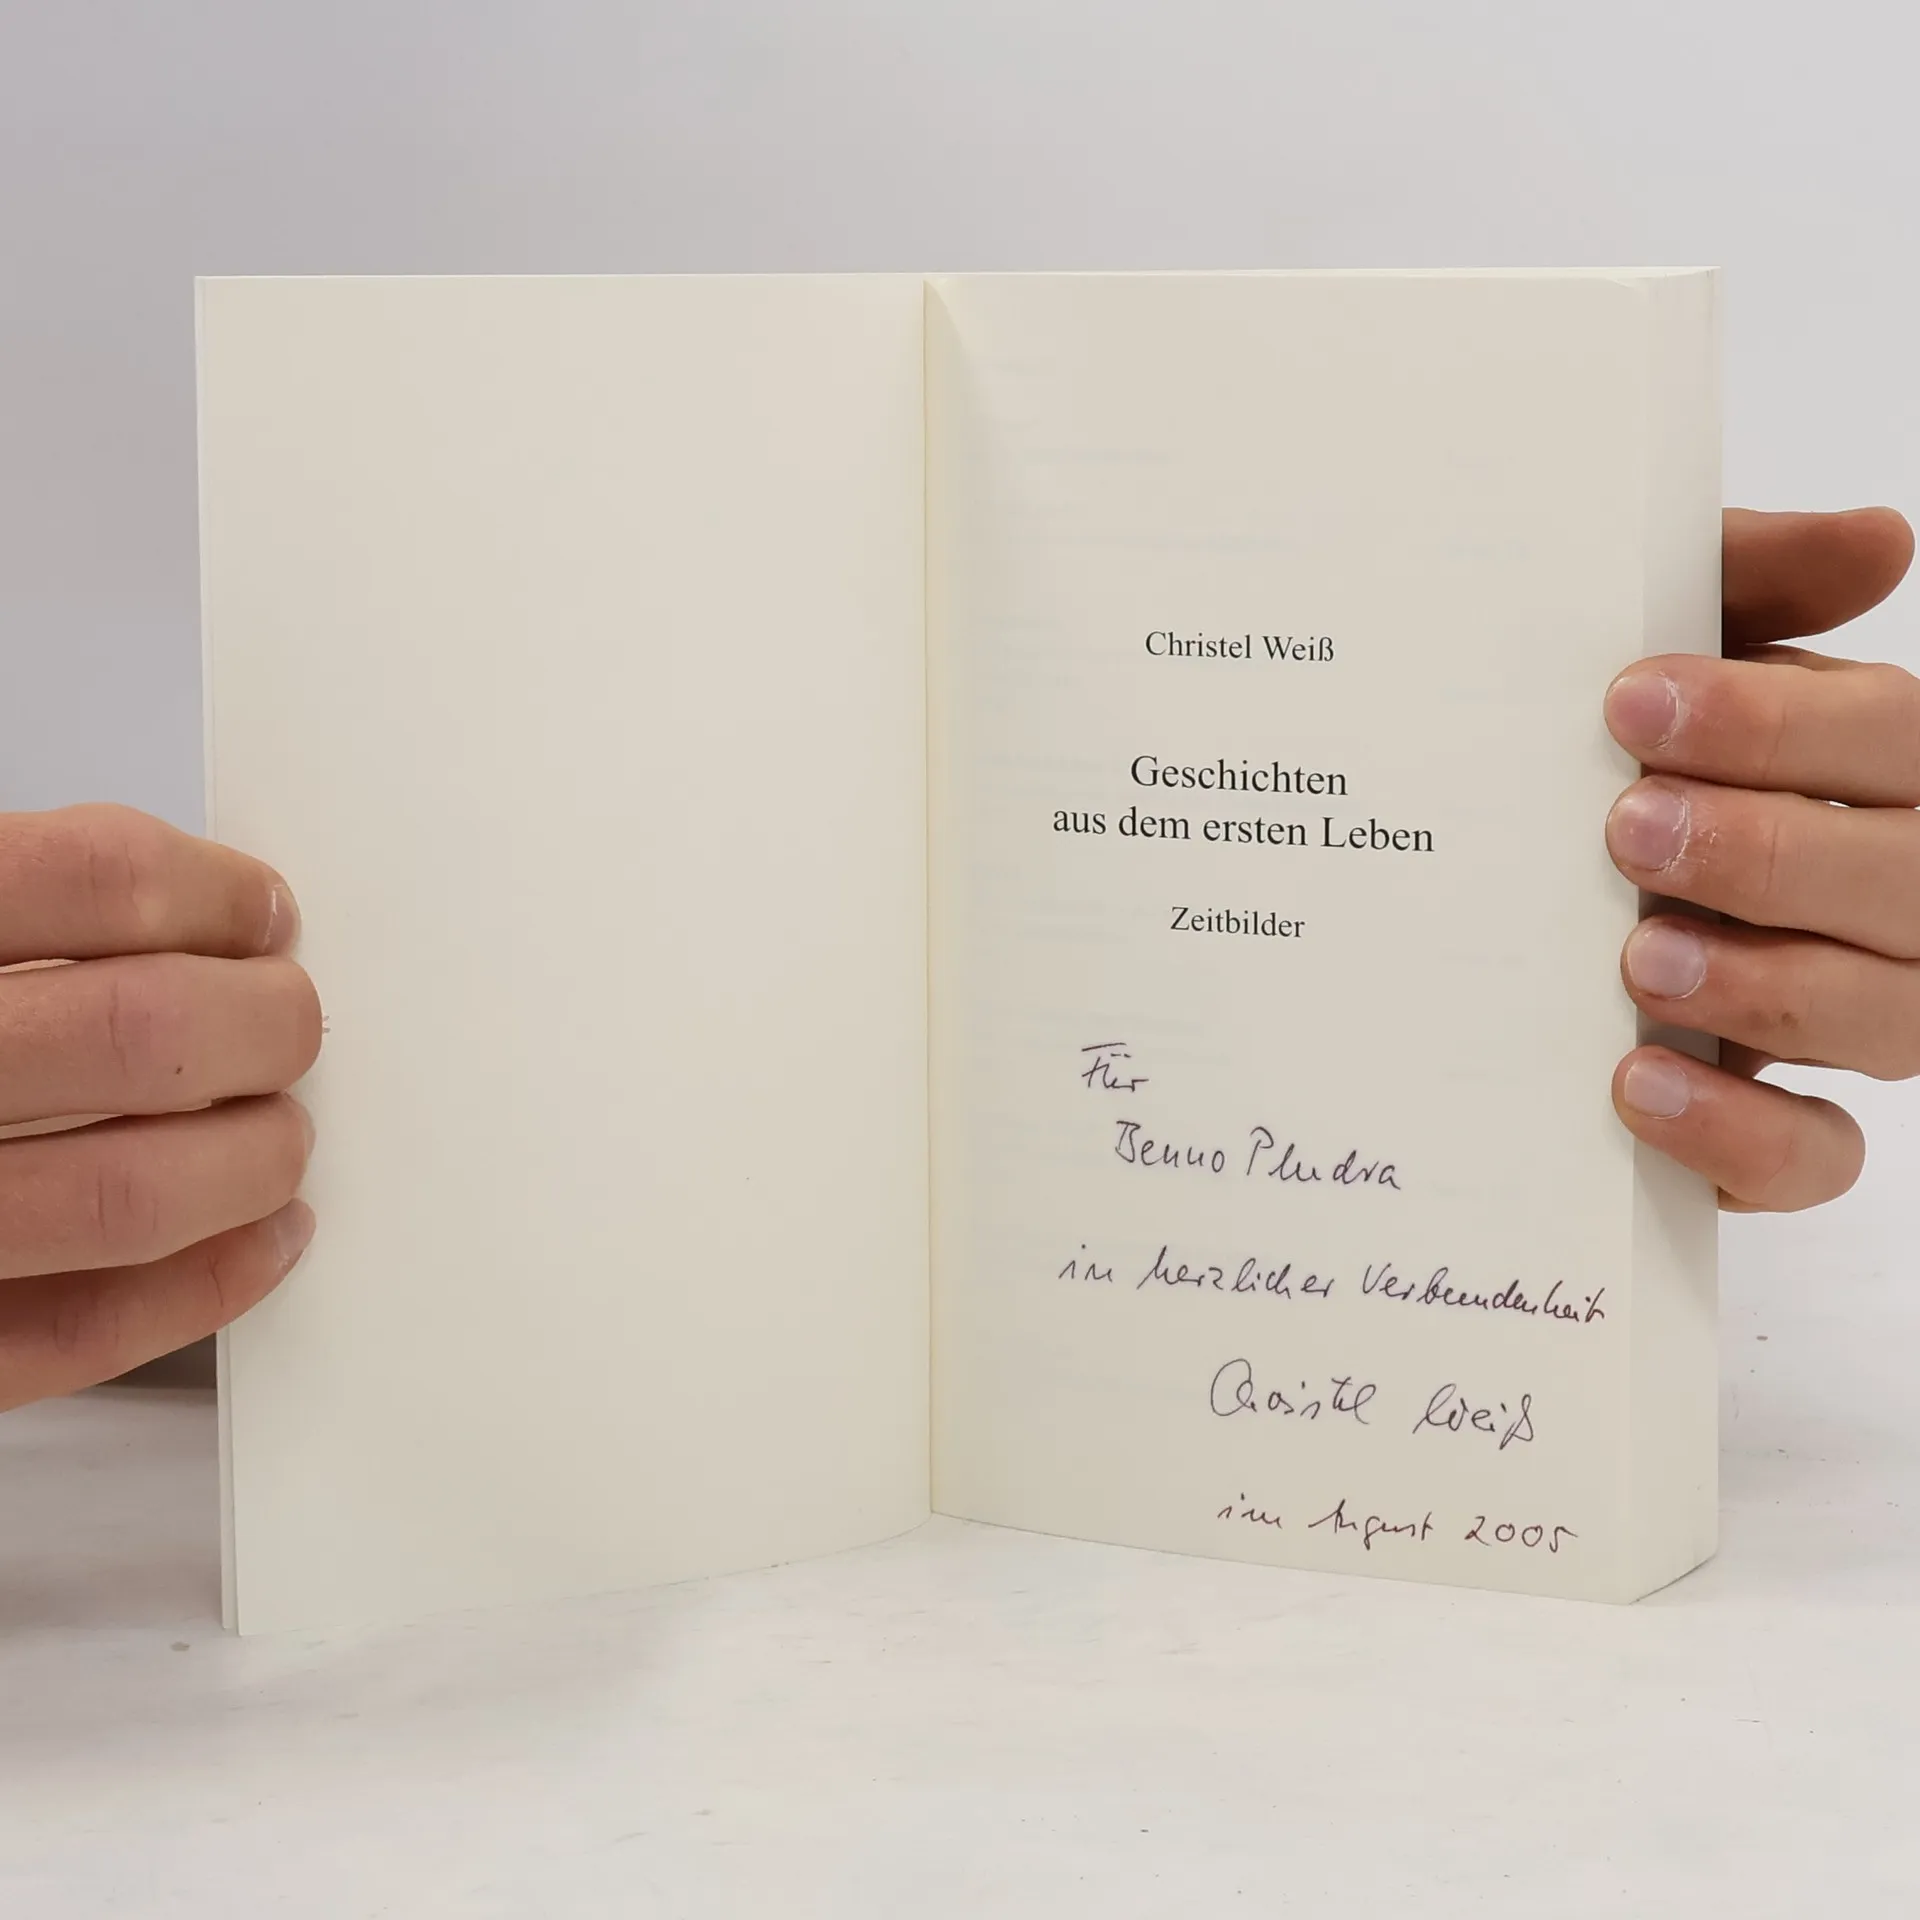 Christel Weiß
Geschichten
aus dem ersten Leben
Zeitbilder
Für
Benno Pludra
in herzlicher Verbundenheit
Christel Weiß
im August 2005